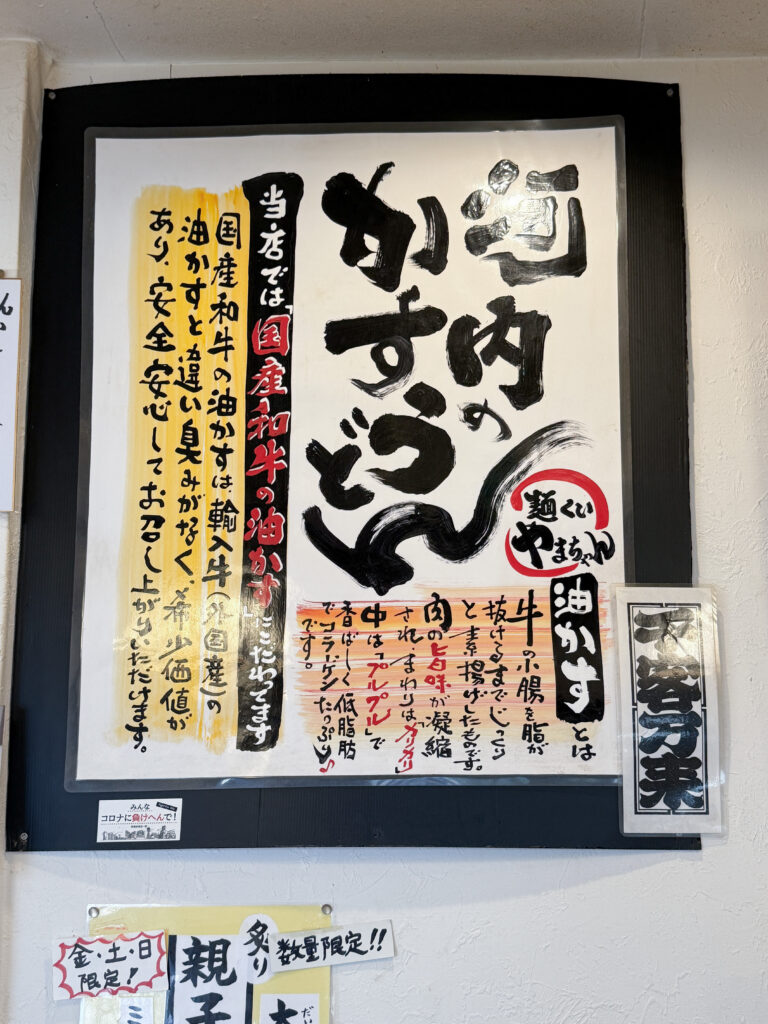 河内の
かすうどん
麺くい
やまちゃん
油かすとは
牛の小腸を脂が
抜けるまでじっくり
と素揚げしたものです。
肉の旨味が凝縮
され、まわりは「カリカリ」
中は「プルプル」で
香ばしく低脂肪
でコラーゲンたっぷり♪
です。
当店では「国産和牛の油かす」にこだわってます
国産和牛の油かすは、輸入牛(外国産)の
油かすと違い臭みがなく、希少価値が
あり、安全安心してお召し上がりいただけます。
千客万来
みんな
コロナに負けへんで!
金・土・日
限定!
炙り
数量限定!!
親子